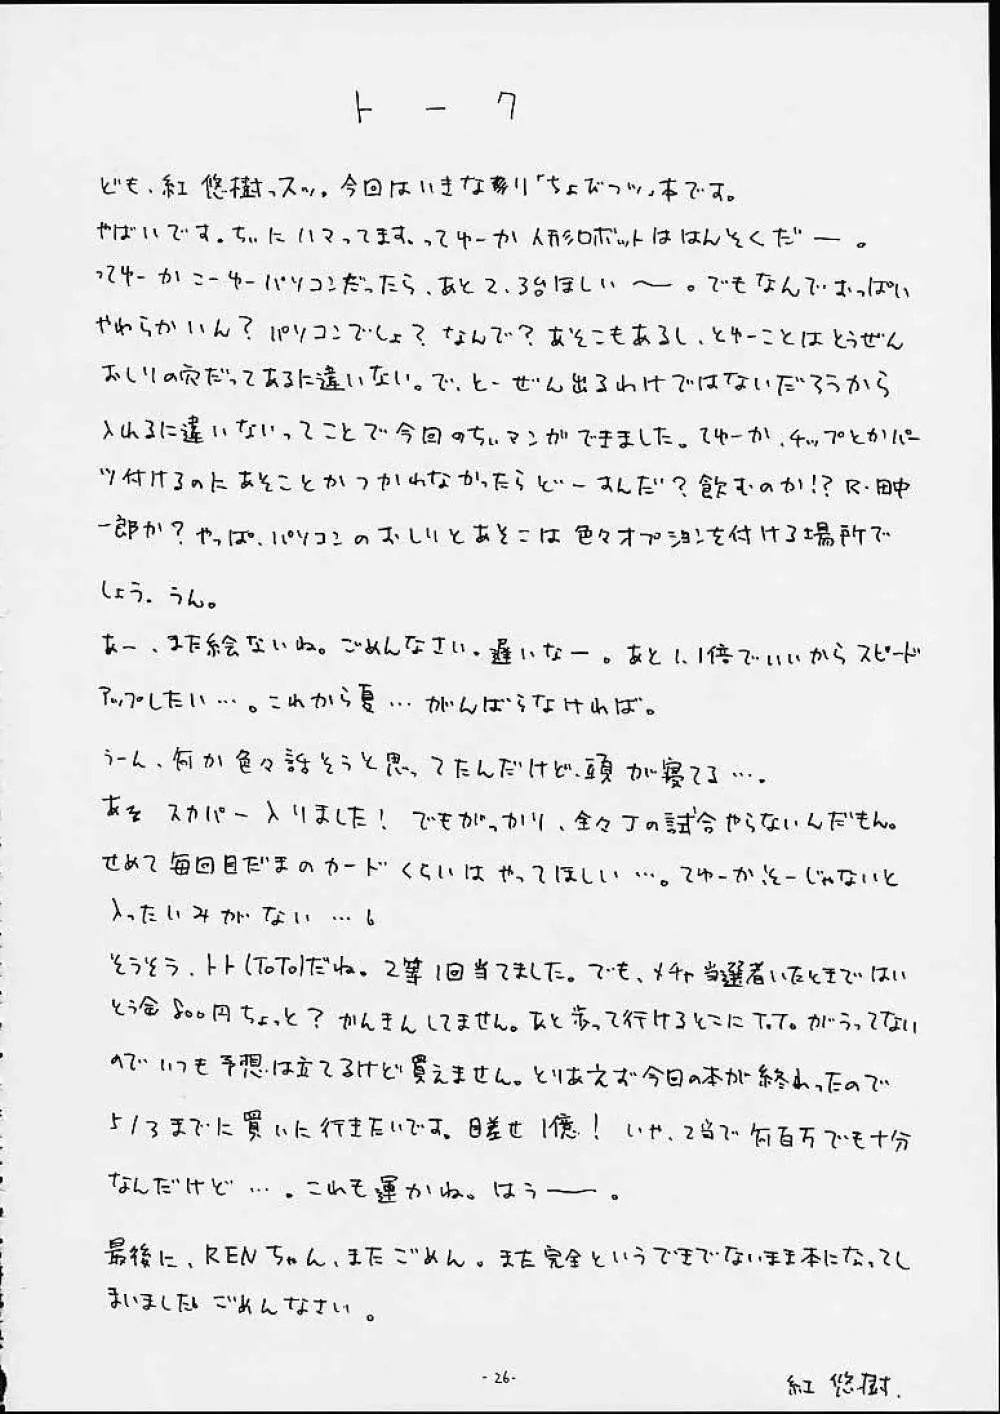 トーク
ども、紅 悠樹っスッ。今回はいきなり「ちょびっツ」本です。
やばいです。ちぃにハマってます、ってゆーか 人形ロボットは はんそくだー。
ってゆーか こーゆーパソコンだったら、あと2、3台ほしい〜。でもなんで おっぱい
やわらかいん?パソコンでしょ?なんで?あそこもあるし、とゆーことは とうぜん
おしりの穴だってあるに違いない。で、とーぜん出るわけではないだろうから
入れるに違いないってことで今回のちぃマンガできました。てゆーか、チップとかパー
ツ付けるのにあそことかつかわなかったらどーすんだ?飲むのか!?R・田中
一郎か?やっぱ、パソコンのおしりとあそこは色々オプションを付ける場所で
しょう。うん。
あー、また絵ないね。ごめんなさい。遅いなー。あと1.1倍でいいからスピード
アップしたい…。これから夏…がんばらなければ。
うーん、何か色々話そうと思ってたんだけど、頭が寝てる…。
あぞ スカパー入りました!でもがっかり、全々Jの試合やらないんだもん。
せめて毎回目だまのカードくらいはやってほしい…。てゆーか、そーじゃないと
入ったいみがない…。
そうそう、トト(TOTO)だね。2等1回当てました。でも、メチャ当選者いたときではい
とう金800円ちょっと?かんきんしてません。あと歩って行けるとこにT.T.がうってない
のでいつも予想は立てるけど買えません。とりあえず今日の本が終わったので
5/3までに買いに行きたいです。目差せ1億!いや、2当で何百万でも十分
なんだけど…。これも運かね。はぅー。
最後に、RENちゃん、またごめん。また完全というできでないまま本になってし
まいました。ごめんなさい。
-26-
紅 悠樹.